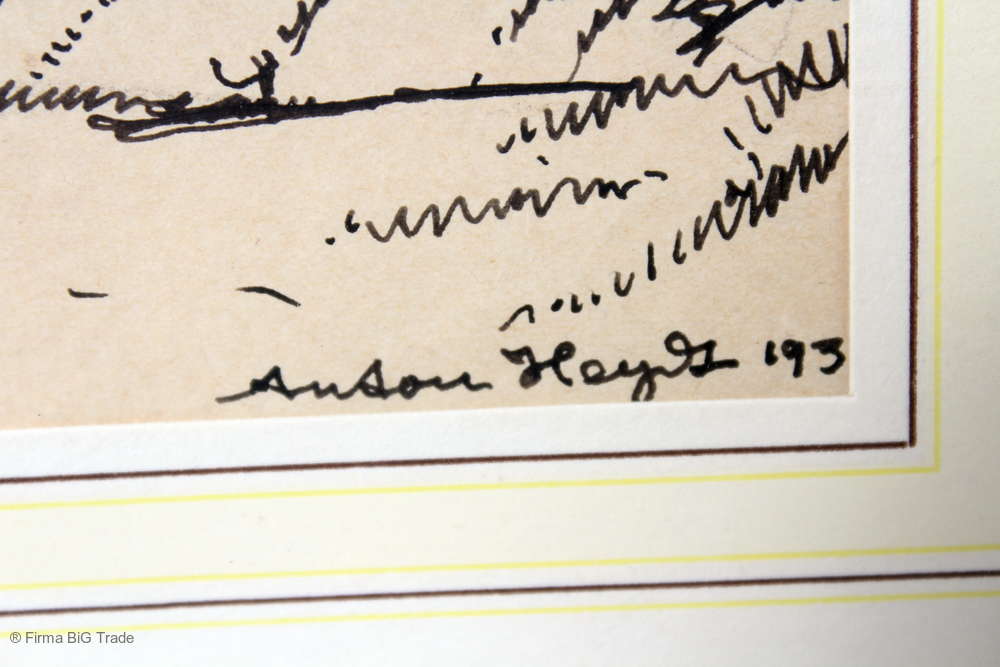 Anton Heydt 193
® Firma BiG Trade